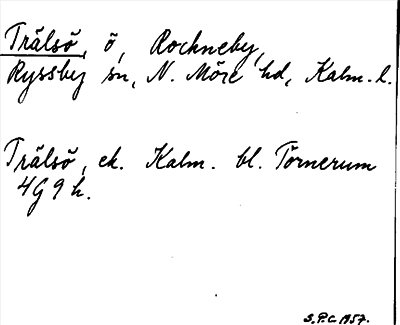 Trälsö, ö, Rockneby,
Ryssby sn, N. Möre hd, Kalm. l.
Trälsö, ek. Kalm. bl. Törnerum
4G9h.
S.P.C 1957.